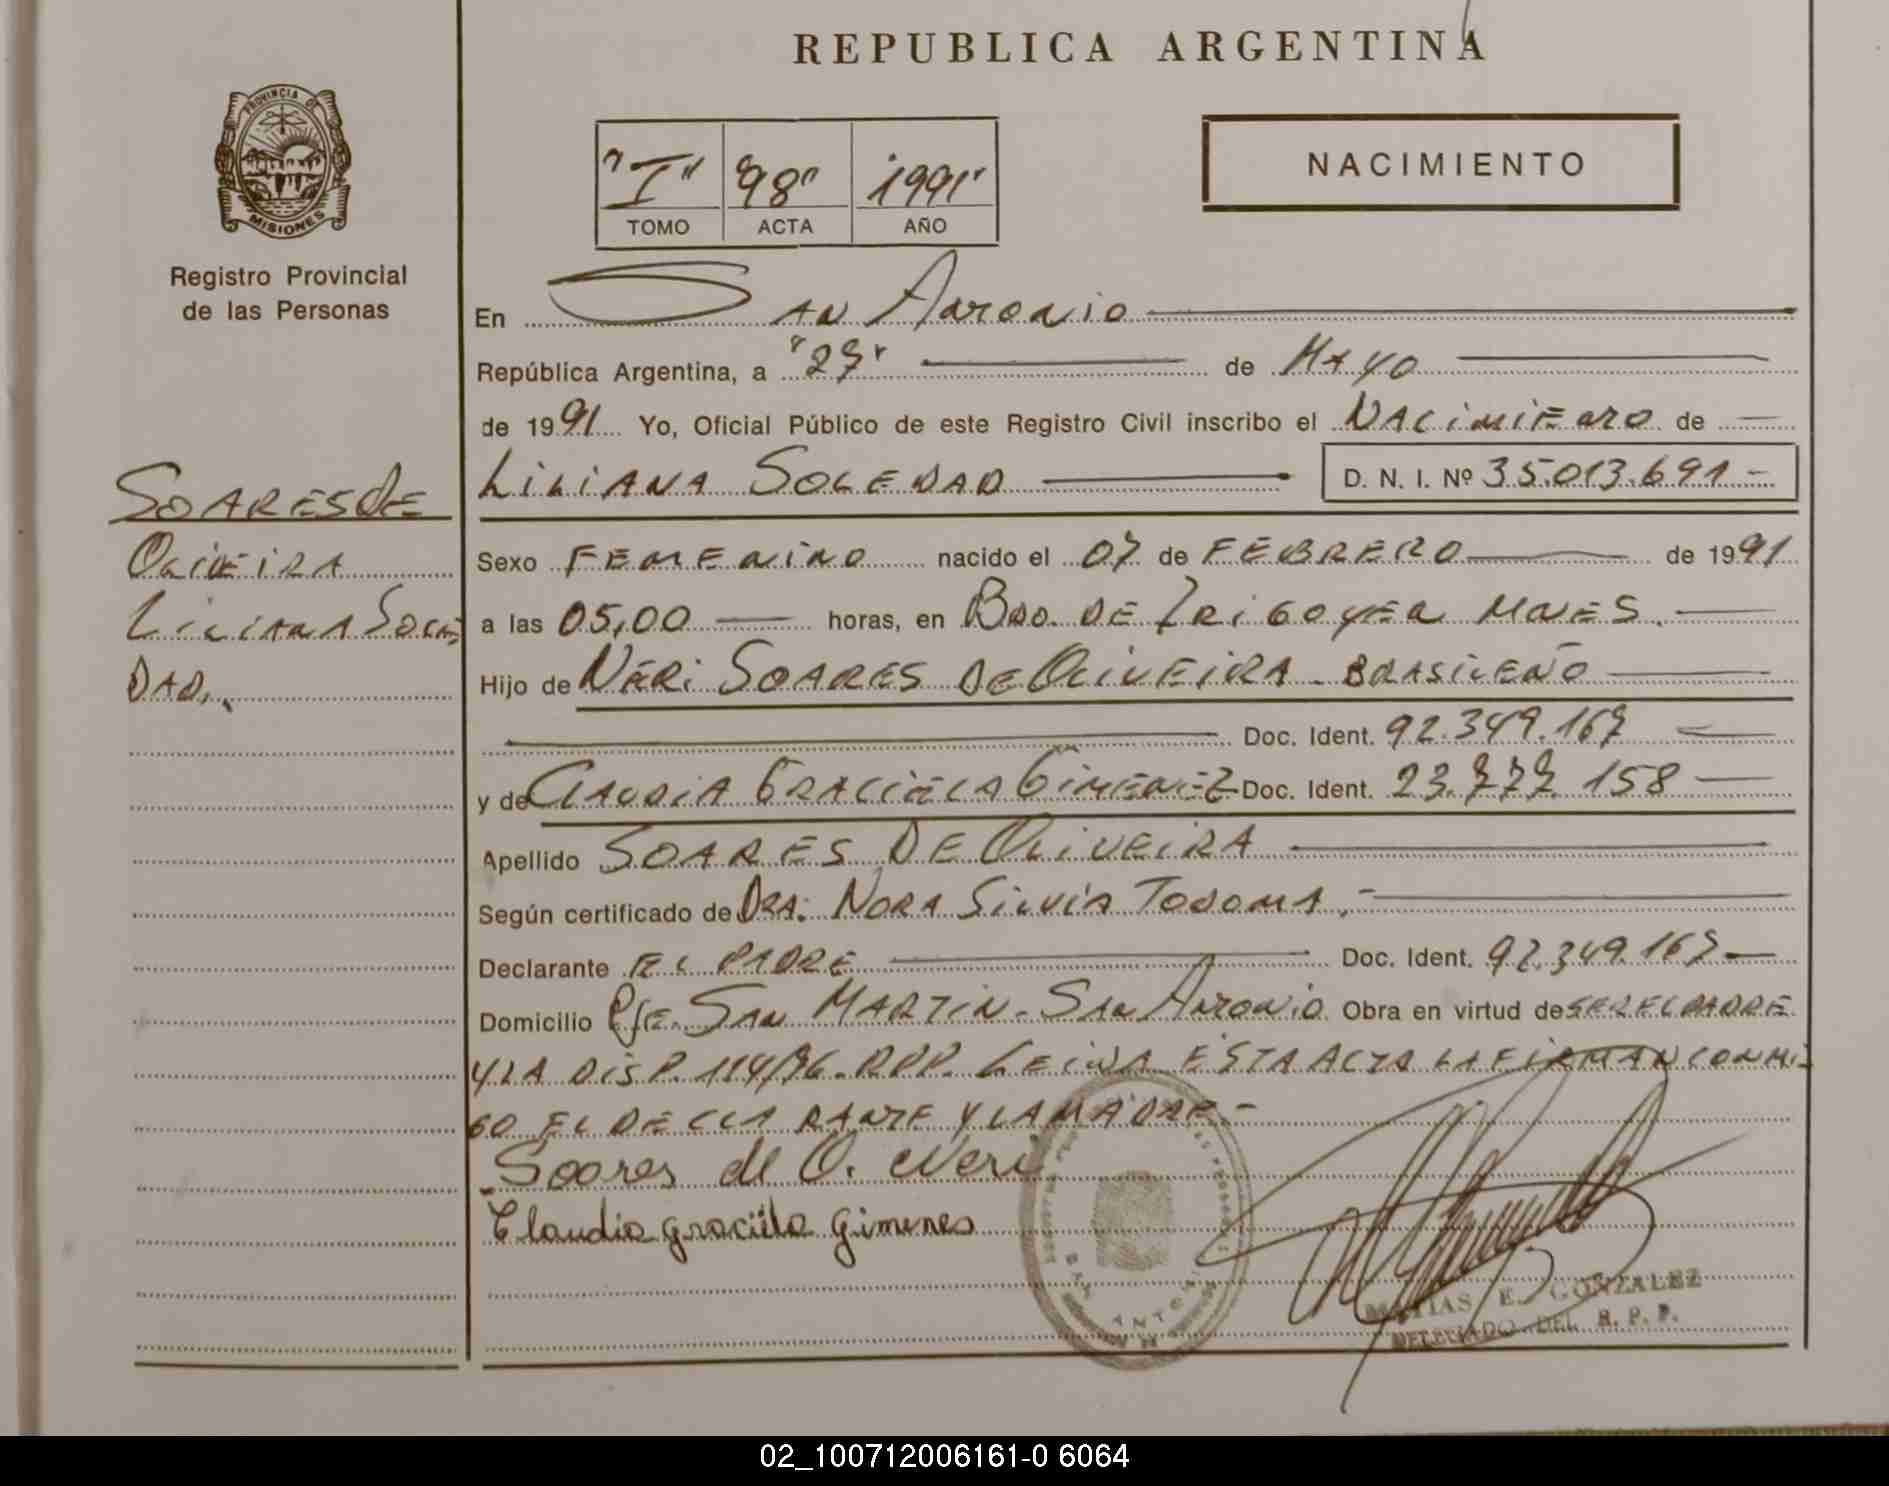 REPUBLICA ARGENTINA
PROVINCIA DE
MISIONES
Registro Provincial
de las Personas
"I" "98" "1991"
TOMO ACTA AÑO
NACIMIENTO
En SAN ANTONIO
República Argentina, a "27" de MAYO
de 1991 Yo, Oficial Público de este Registro Civil inscribo el NACIMIENTO de
LILIANA SOLEDAD D. N. I. Nº 35.013.691-
SOARES DE
OLIVEIRA
LILIANA SOLE
DAD.
Sexo FEMENINO nacido el 07 de FEBRERO de 1991
a las 05,00 horas, en BDO. DE IRIGOYEN MNES.
Hijo de NERI SOARES DE OLIVEIRA - BRASILEÑO
Doc. Ident. 92.349.167
y de CLAUDIA GRACIELA GIMENEZ Doc. Ident. 23.777.158
Apellido SOARES DE OLIVEIRA
Según certificado de DRA. NORA SILVIA
Declarante EL PADRE Doc. Ident. 92.349.167
Domicilio PJE. SAN MARTIN - SAN ANTONIO Obra en virtud de SER EL PADRE
Y LA DISP. 114/96. RPP. LEIDA ESTA ACTA LA FIRMAN CONMI
GO EL DECLARANTE Y LA MADRE.-
Soares de O. Neri
Claudia graciela gimenes
SAN ANTONIO
MATIAS E. GONZALEZ
DELEGADO DEL R. P. P.
02_100712006161-0 6064